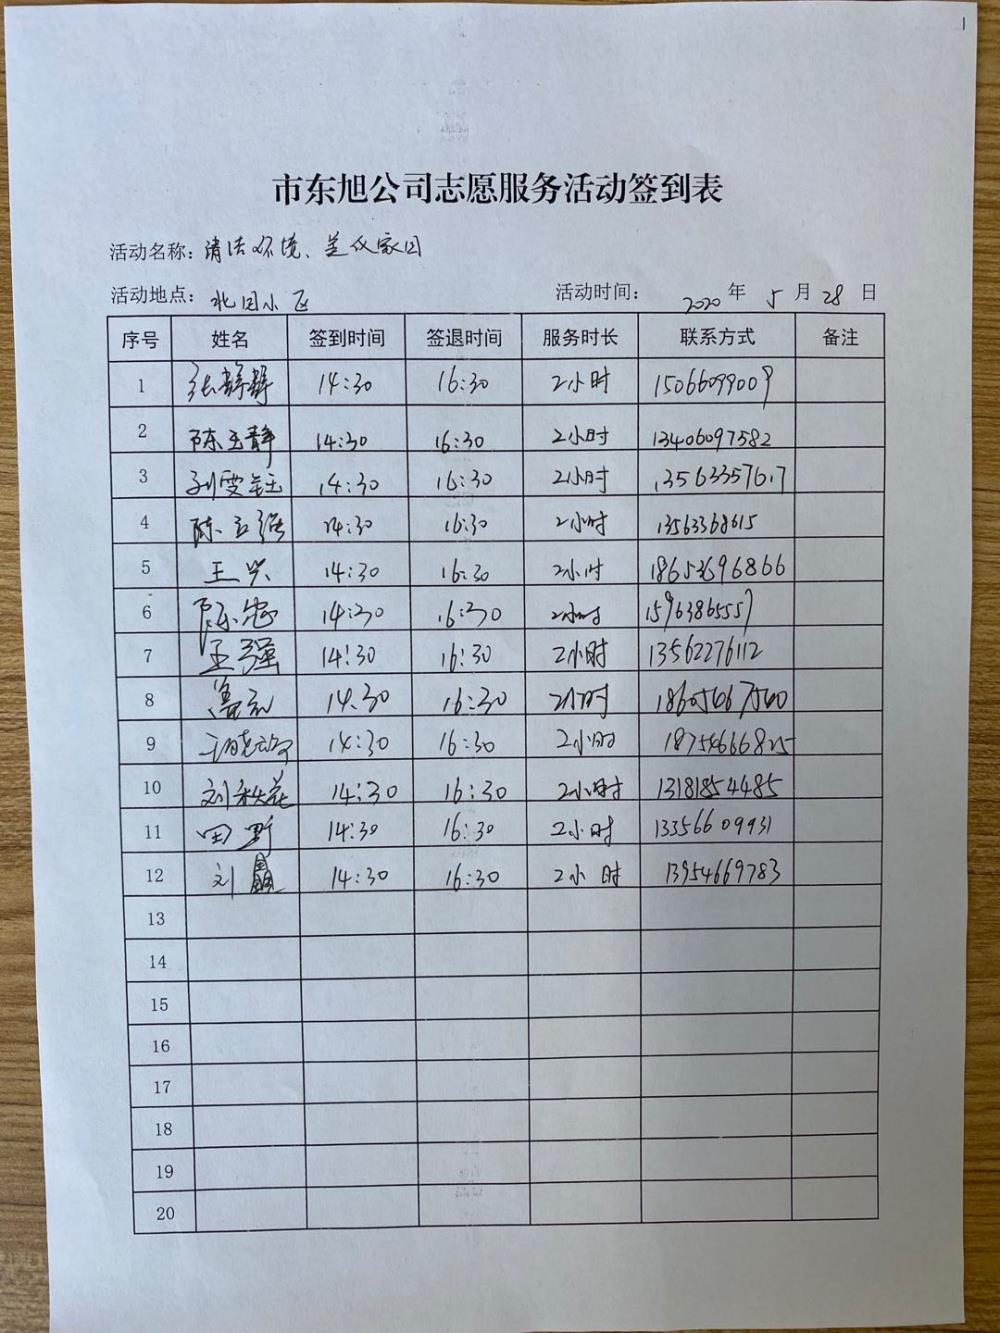 市东旭公司志愿服务活动签到表
活动名称：清洁环境、美化家园
活动地点： 北园小区 活动时间： 2020 年 5 月 28 日
序号 姓名 签到时间 签退时间 服务时长 联系方式 备注
1 张静静 14:30 16:30 2小时 15066099009
2 陈玉静 14:30 16:30 2小时 13406097582
3 刘雯钰 14:30 16:30 2小时 13563357617
4 陈立强 14:30 16:30 2小时 13563368615
5 王兴 14:30 16:30 2小时
6 14:30 16:30 2小时 15963865557
7 王强 14:30 16:30 2小时 13562276112
8 14:30 16:30 2小时 18605067560
9 14:30 16:30 2小时 18754666825
10 刘秋花 14:30 16:30 2小时 13181854485
11 田野 14:30 16:30 2小时 13356609931
12 刘 14:30 16:30 2小时 13954669783
13
14
15
16
17
18
19
20